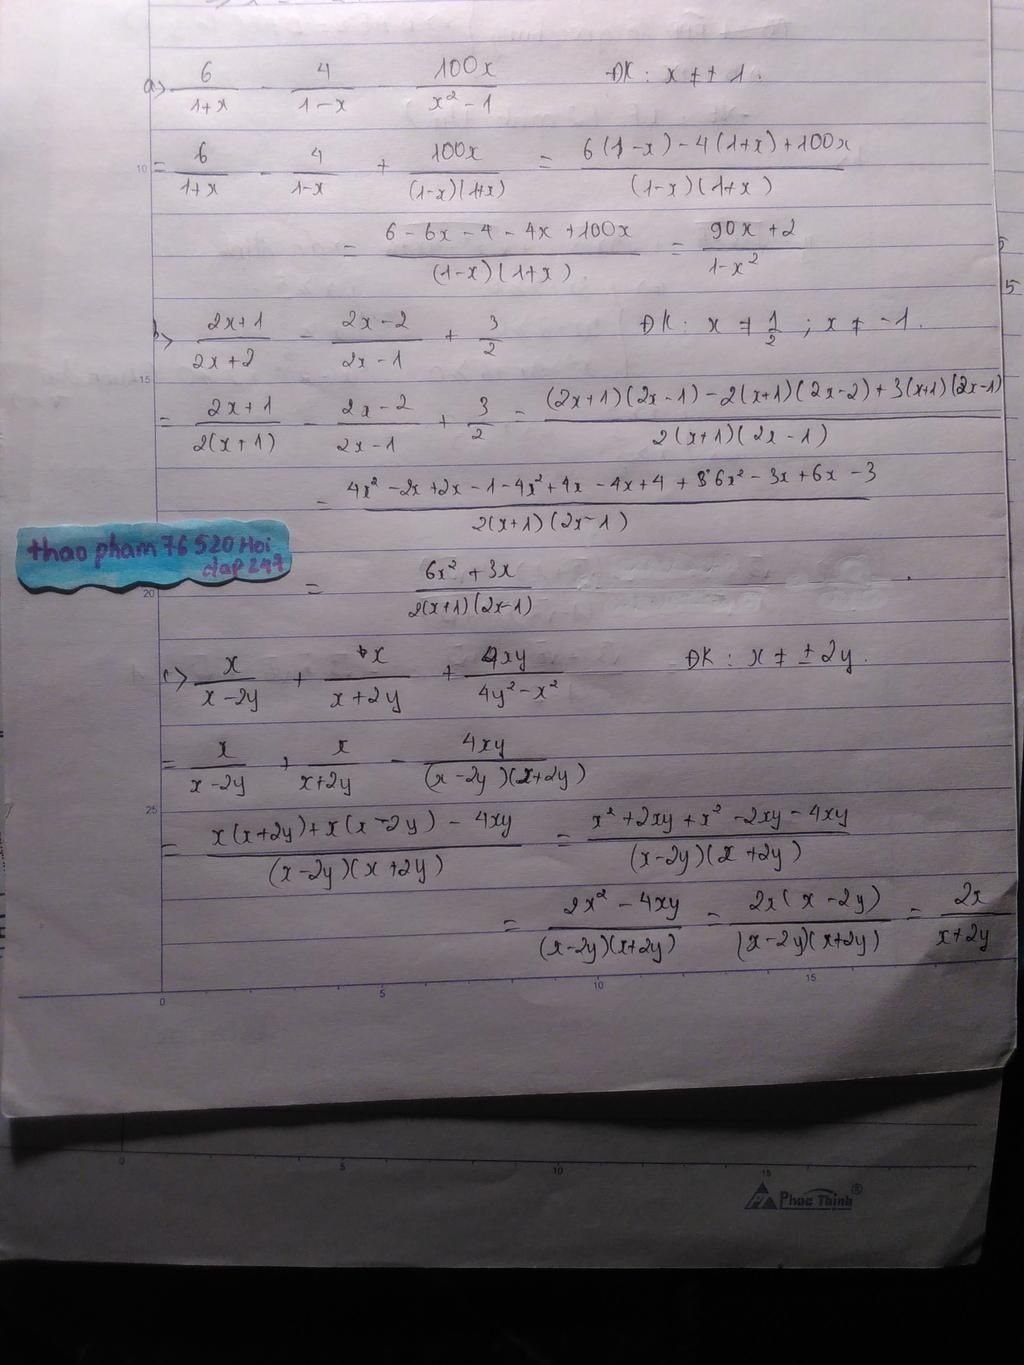 a> 6/(1+x) - 4/(1-x) - 100x/(x² - 1) ĐK: x ≠ ± 1.
10
= 6/(1+x) - 4/(1-x) + 100x/((1-x)(1+x)) = (6(1-x) - 4(1+x) + 100x)/((1-x)(1+x))
= (6 - 6x - 4 - 4x + 100x)/((1-x)(1+x)) = (90x + 2)/(1-x²)
5
5
b> (2x+1)/(2x+2) - (2x-2)/(2x-1) + 3/2 ĐK: x ≠ 1/2 ; x ≠ -1.
15
= (2x+1)/(2(x+1)) - (2x-2)/(2x-1) + 3/2 = ((2x+1)(2x-1) - 2(x+1)(2x-2) + 3(x+1)(2x-1))/(2(x+1)(2x-1))
= (4x² - 2x + 2x - 1 - 4x² + 4x - 4x + 4 + 6x² - 3x + 6x - 3)/(2(x+1)(2x-1))
thao pham 76 520 Hoi
dap 247
20
= (6x² + 3x)/(2(x+1)(2x-1))
c> x/(x-2y) + x/(x+2y) + 4xy/(4y² - x²) ĐK: x ≠ ± 2y.
= x/(x-2y) + x/(x+2y) - 4xy/((x-2y)(x+2y))
25
= (x(x+2y) + x(x-2y) - 4xy)/((x-2y)(x+2y)) = (x² + 2xy + x² - 2xy - 4xy)/((x-2y)(x+2y))
= (2x² - 4xy)/((x-2y)(x+2y)) = 2x(x-2y)/((x-2y)(x+2y)) = 2x/(x+2y)
0 5 10 15
0 5 10 15
Phuc Thinh®